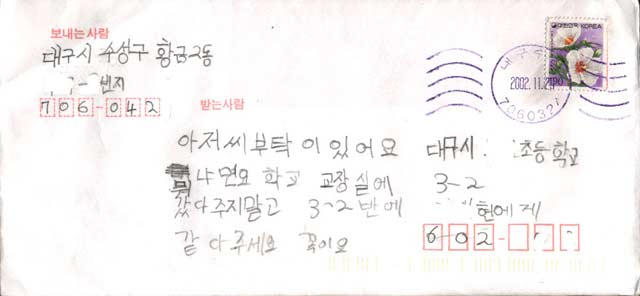 보내는사람
대구시 수성구 황금2동
번지
706-042
대한민국 KOREA
2002.11.2
706032
받는사람
아저씨 부탁이 있어요
뭐냐면요 학교 교장실에
갔다주지말고 3-2반에
같다주세요 꼭이요
대구시 초등학교
3-2
현에게
602-